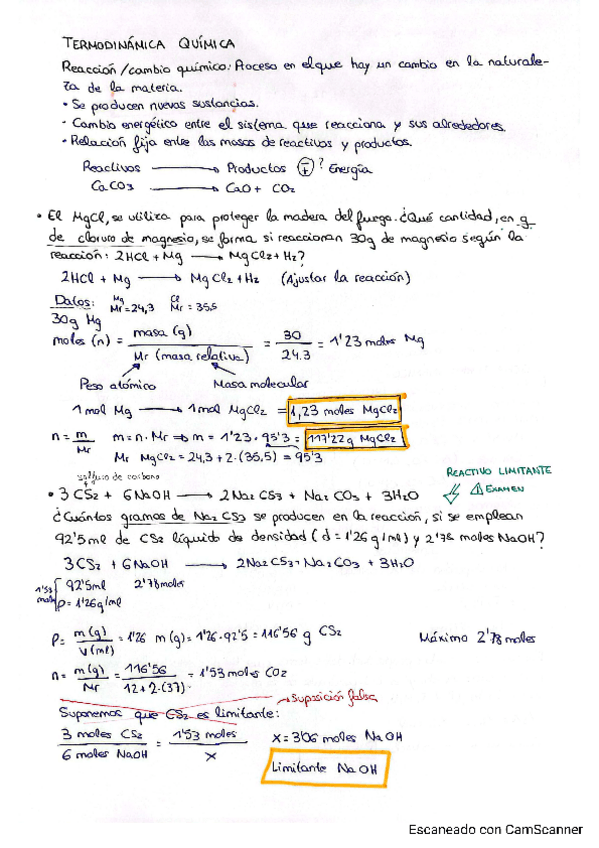 TERMODINÁMICA QUÍMICA
Reacción/cambio químico: Proceso en el que hay un cambio en la naturale-
za de la materia.
• Se producen nuevas sustancias.
- Cambio energético entre el sistema que reacciona y sus alrededores.
• Relación fija entre las masas de reactivos y productos.
Reactivos ⟶ Productos ± ? Energía
CaCO3 ⟶ CaO + CO2
• El MgCl2 se utiliza para proteger la madera del fuego. ¿Qué cantidad, en g
de cloruro de magnesio, se forma si reaccionan 30g de magnesio según la
reacción: 2HCl + Mg ⟶ MgCl2 + H2?
2HCl + Mg ⟶ MgCl2 + H2 (Ajustar la reacción)
Datos: Mg Mr = 24,3 Cl Mr = 35,5
30g Mg
moles (n) = masa (g) / Mr (masa relativa) = 30 / 24.3 = 1'23 moles Mg
Peso atómico Masa molecular
1 mol Mg ⟶ 1 mol MgCl2 = 1,23 moles MgCl2
n = m / Mr m = n · Mr ⇒ m = 1'23 · 95'3 = 117'22g MgCl2
Mr MgCl2 = 24,3 + 2·(35,5) = 95'3
sulfuro de carbono
REACTIVO LIMITANTE
EXAMEN
• 3CS2 + 6NaOH ⟶ 2Na2CS3 + Na2CO3 + 3H2O
¿Cuántos gramos de Na2CS3 se producen en la reacción, si se emplean
92'5ml de CS2 líquido de densidad (d = 1'26 g/ml) y 2'78 moles NaOH?
3CS2 + 6NaOH ⟶ 2Na2CS3 + Na2CO3 + 3H2O
1'53 moles 92'5ml 2'78 moles
ρ = 1'26g/ml
ρ = m(g) / V(ml) = 1'26 m(g) = 1'26 · 92'5 = 116'56 g CS2 Máximo 2'78 moles
n = m(g) / Mr = 116'56 / 12 + 2·(37) = 1'53 moles CO2
→ Suposición falsa
Suponemos que CS2 es limitante:
3 moles CS2 / 6 moles NaOH = 1'53 moles / x x = 3'06 moles NaOH
Limitante NaOH
Escaneado con CamScanner